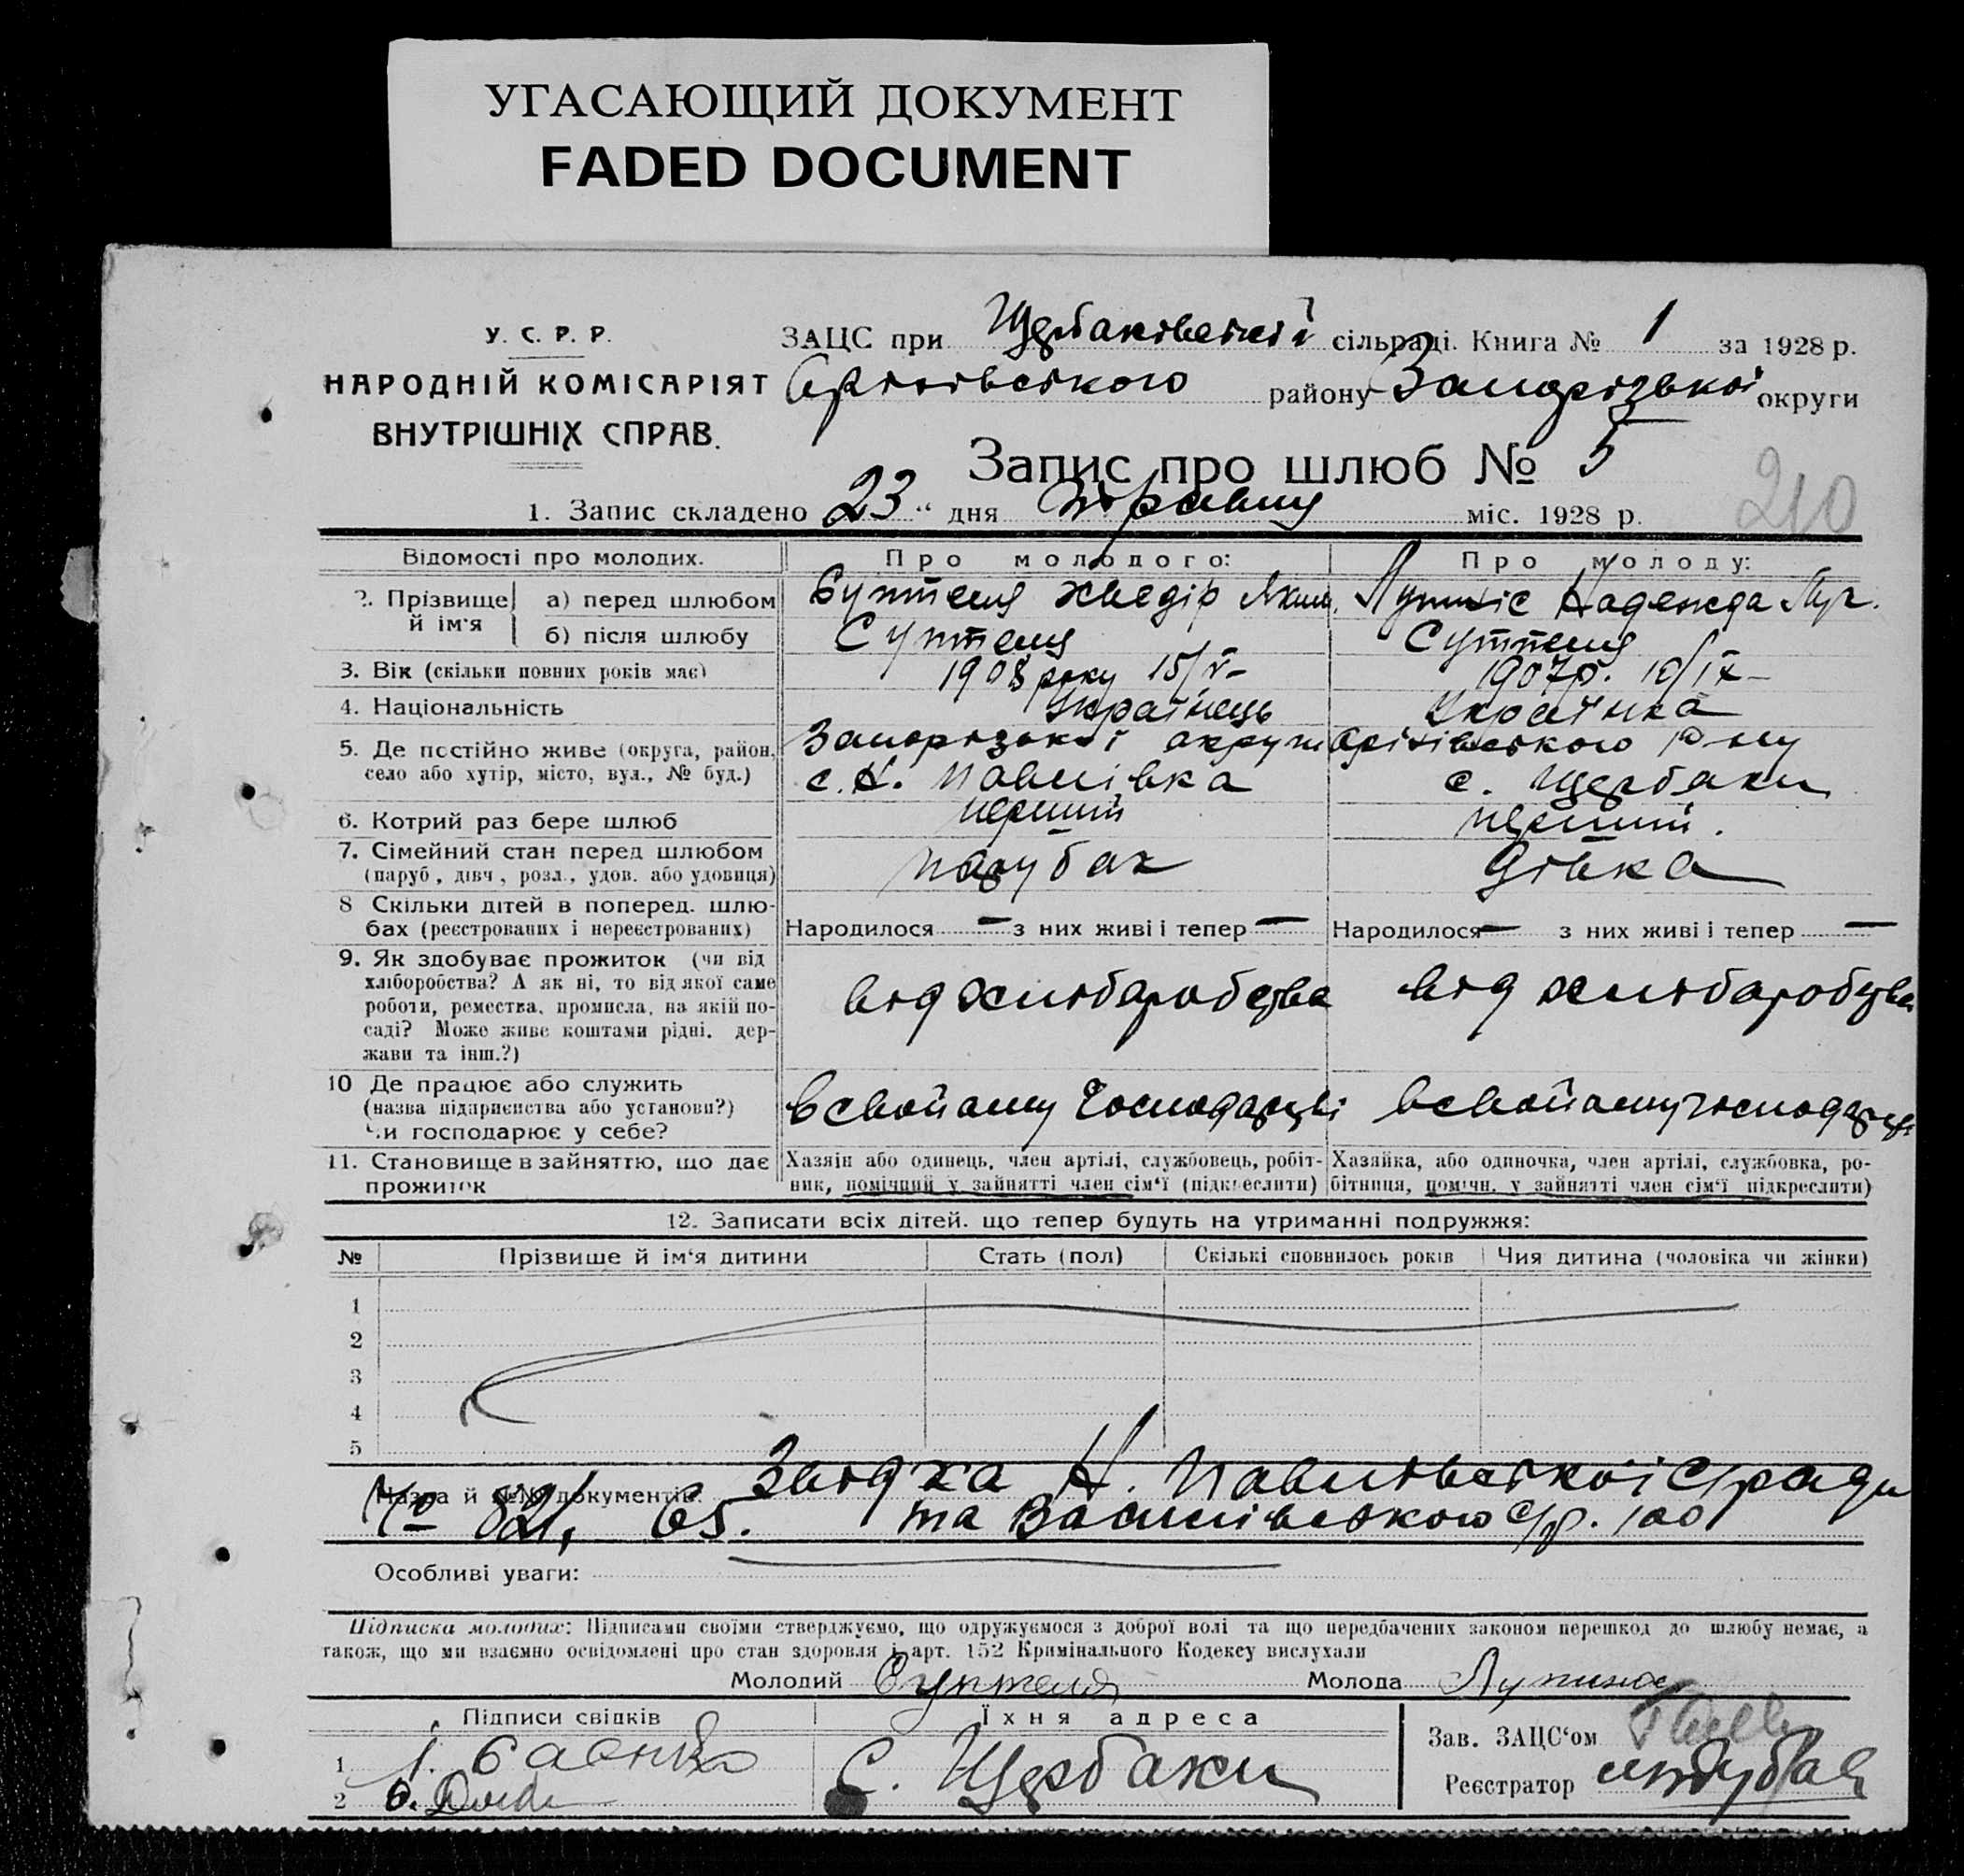 УГАСАЮЩИЙ ДОКУМЕНТ
FADED DOCUMENT
У. С. Р. Р.
НАРОДНІЙ КОМІСАРІЯТ
ВНУТРІШНІХ СПРАВ.
ЗАЦС при Щербаківській сільраді. Книга № 1 за 1928 р.
Оріхівського району Запорізької округи
Запис про шлюб № 5
210
1. Запис складено 23 " дня травня міс. 1928 р.
Відомості про молодих. Про молодого: Про молоду:
2. Прізвище й ім'я а) перед шлюбом Суптеля Хведір Яким. Надежда
б) після шлюбу Суптеля Суптеля
3. Вік (скільки повних років має) 1908 року 15/V- 1907р. 10/IX-
4. Національність Українець Українка
5. Де постійно живе (округа, район, село або хутір, місто, вул., № буд.) Запорізької округи Оріхівського р-ну
с. Н. Павлівка с. Щербаки
6. Котрий раз бере шлюб перший перший.
7. Сімейний стан перед шлюбом парубак дівка
(паруб., дівч., розл., удов. або удовиця)
8 Скільки дітей в поперед. шлю-
бах (реєстрованих і нереєстрованих) Народилося — з них живі і тепер — Народилося — з них живі і тепер —
9. Як здобуває прожиток (чи від
хліборобства? А як ні, то від якої саме
роботи, ремества, промисла, на якій по-
саді? Може живе коштами рідні, дер-
жави та інш.?)
від хлібаробства від хлібаробства
10 Де працює або служить
(назва підприємства або установи?)
чи господарює у себе?
в свойому господарстві в свойому господарстві
11. Становище в зайняттю, що дає
прожиток
Хазяїн або одинець, член артілі, службовець, робіт-
ник, помічний у зайнятті член сім'ї (підкреслити)
Хазяйка, або одиночка, член артілі, службовка, ро-
бітниця, помічн. у зайнятті член сім'ї підкреслити)
12. Записати всіх дітей. що тепер будуть на утриманні подружжя:
№ Прізвище й ім'я дитини Стать (пол) Скількі сповнилось років Чия дитина (чоловіка чи жінки)
1
2
3
4
5
Назва й №№ документів: Звідка Н. Павлівської с/ради
№ 821, 65. та Василівського с/р. 100
Особливі уваги:
Підписка молодих: Підписами своїми стверджуємо, що одружуємося з доброї волі та що передбачених законом перешкод до шлюбу немає, а
також, що ми взаємно освідомлені про стан здоровля і арт. 152 Кримінального Кодексу вислухали
Молодий Суптеля Молода
Підписи свідків Їхня адреса
1
2
С. Щербаки
Зав. ЗАЦС'ом
Реєстратор